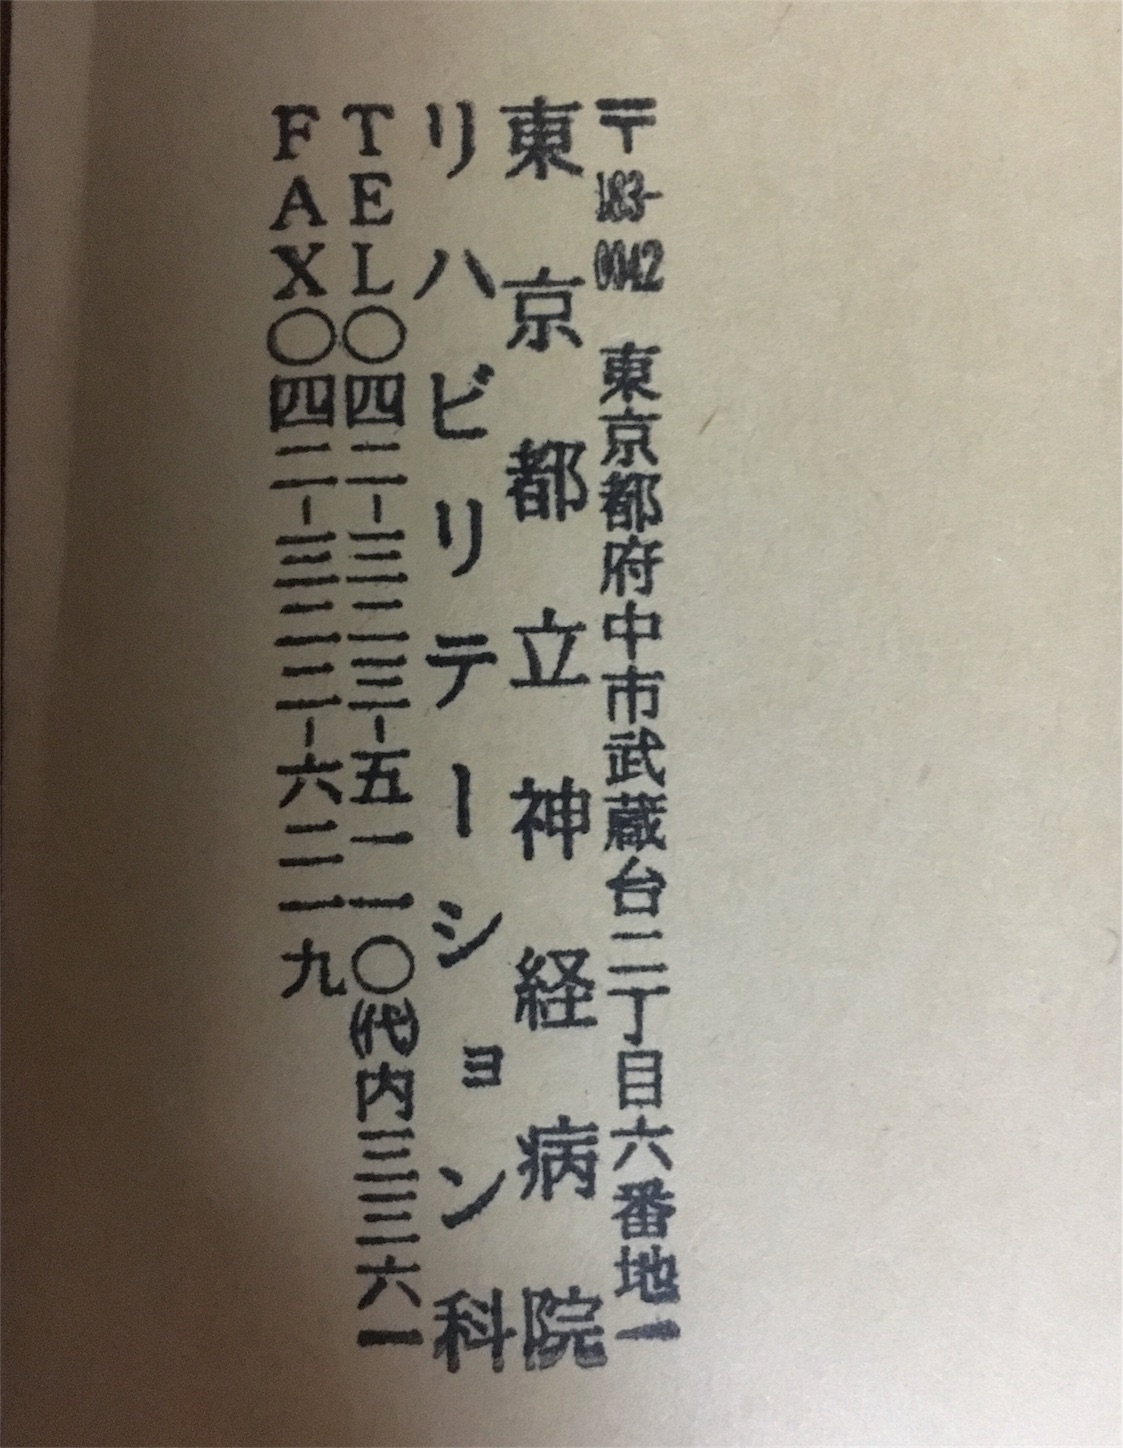 〒183-0042 東京都府中市武蔵台二丁目六番地一
東京都立神経病院
リハビリテーション科
TEL〇四二-三二三-五一一〇(代)内三三六一
FAX〇四二-三二二-六二一九